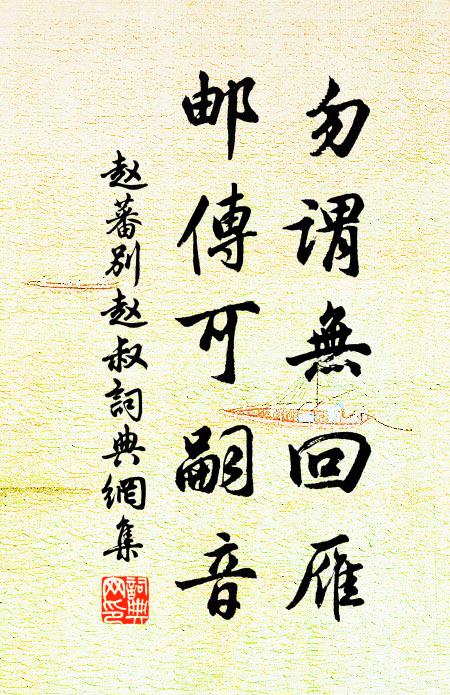 勿谓無回雁
邮傳可嗣音
赵蕃别赵叔詞典網集
詞典网印